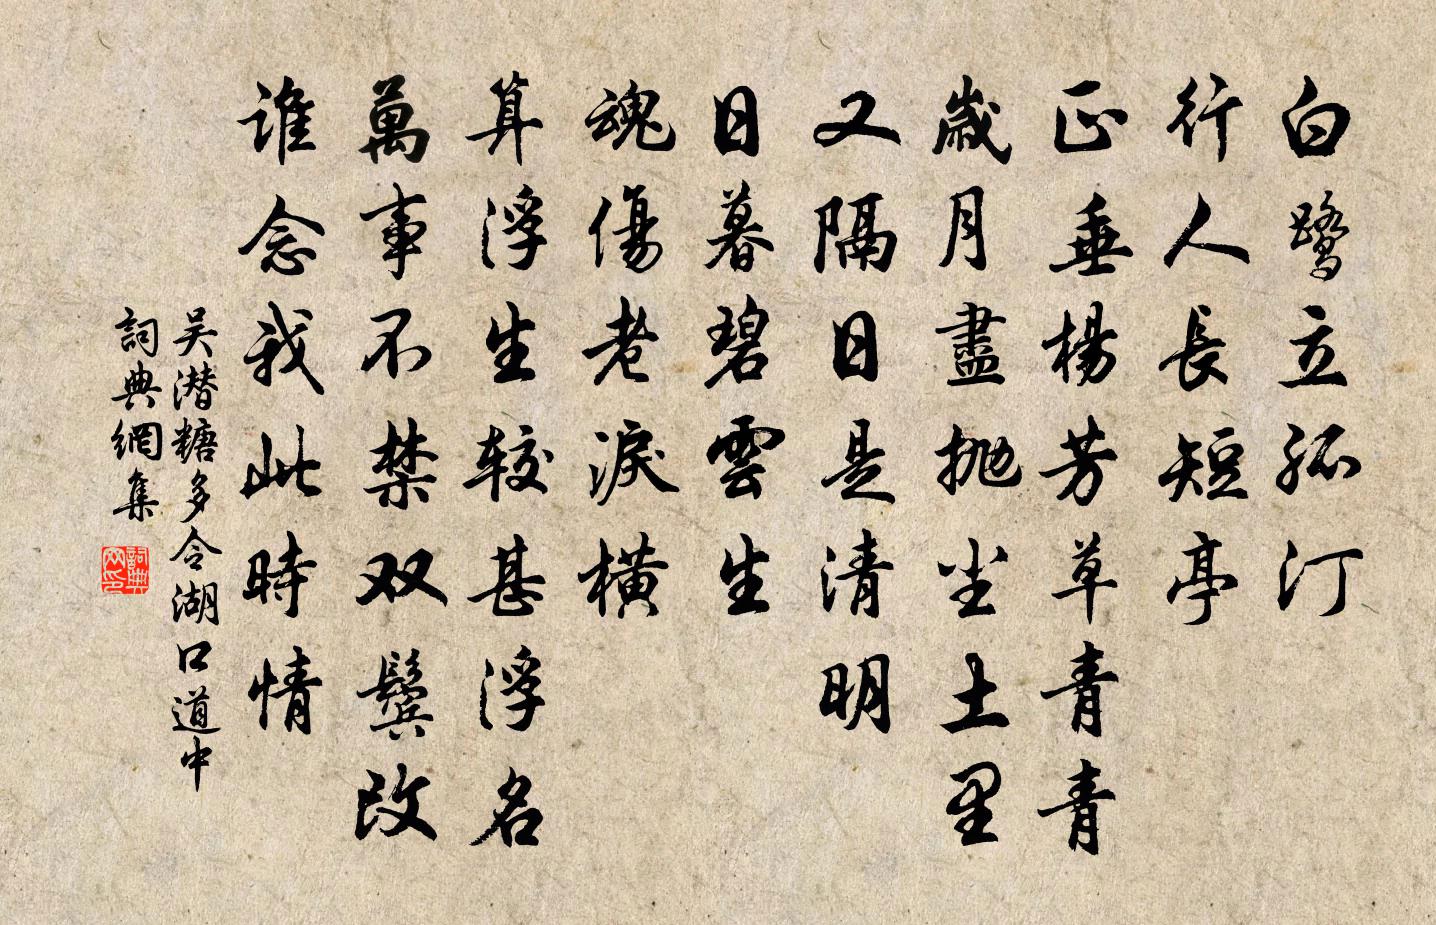 白鹭立孤汀
行人長短亭
正垂楊芳草青青
歲月盡抛尘土里
又隔日是清明
日暮碧雲生
魂傷老淚橫
算浮生较甚浮名
萬事不禁双鬓改
谁念我此時情
吴潜糖多令湖口道中
詞典網集
詞典网印